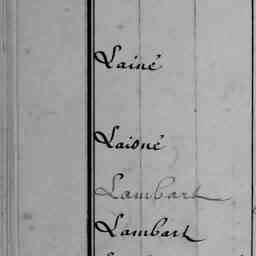 Lainé
Laisné
Lambart
Lambart